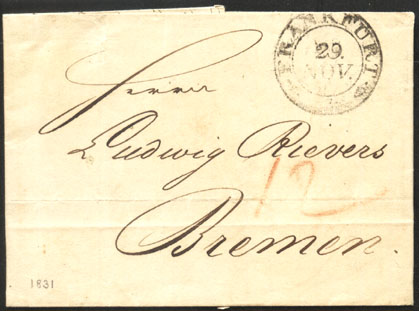 FRANKFURT
29.
NOV.
Herrn
Ludwig Rievers
12
Bremen.
1831